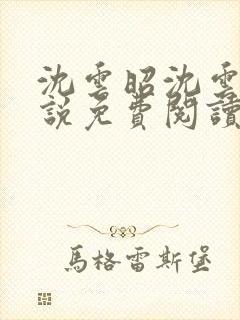 沈雲昭沈雲
說免費閱讀
馬格雷斯堡